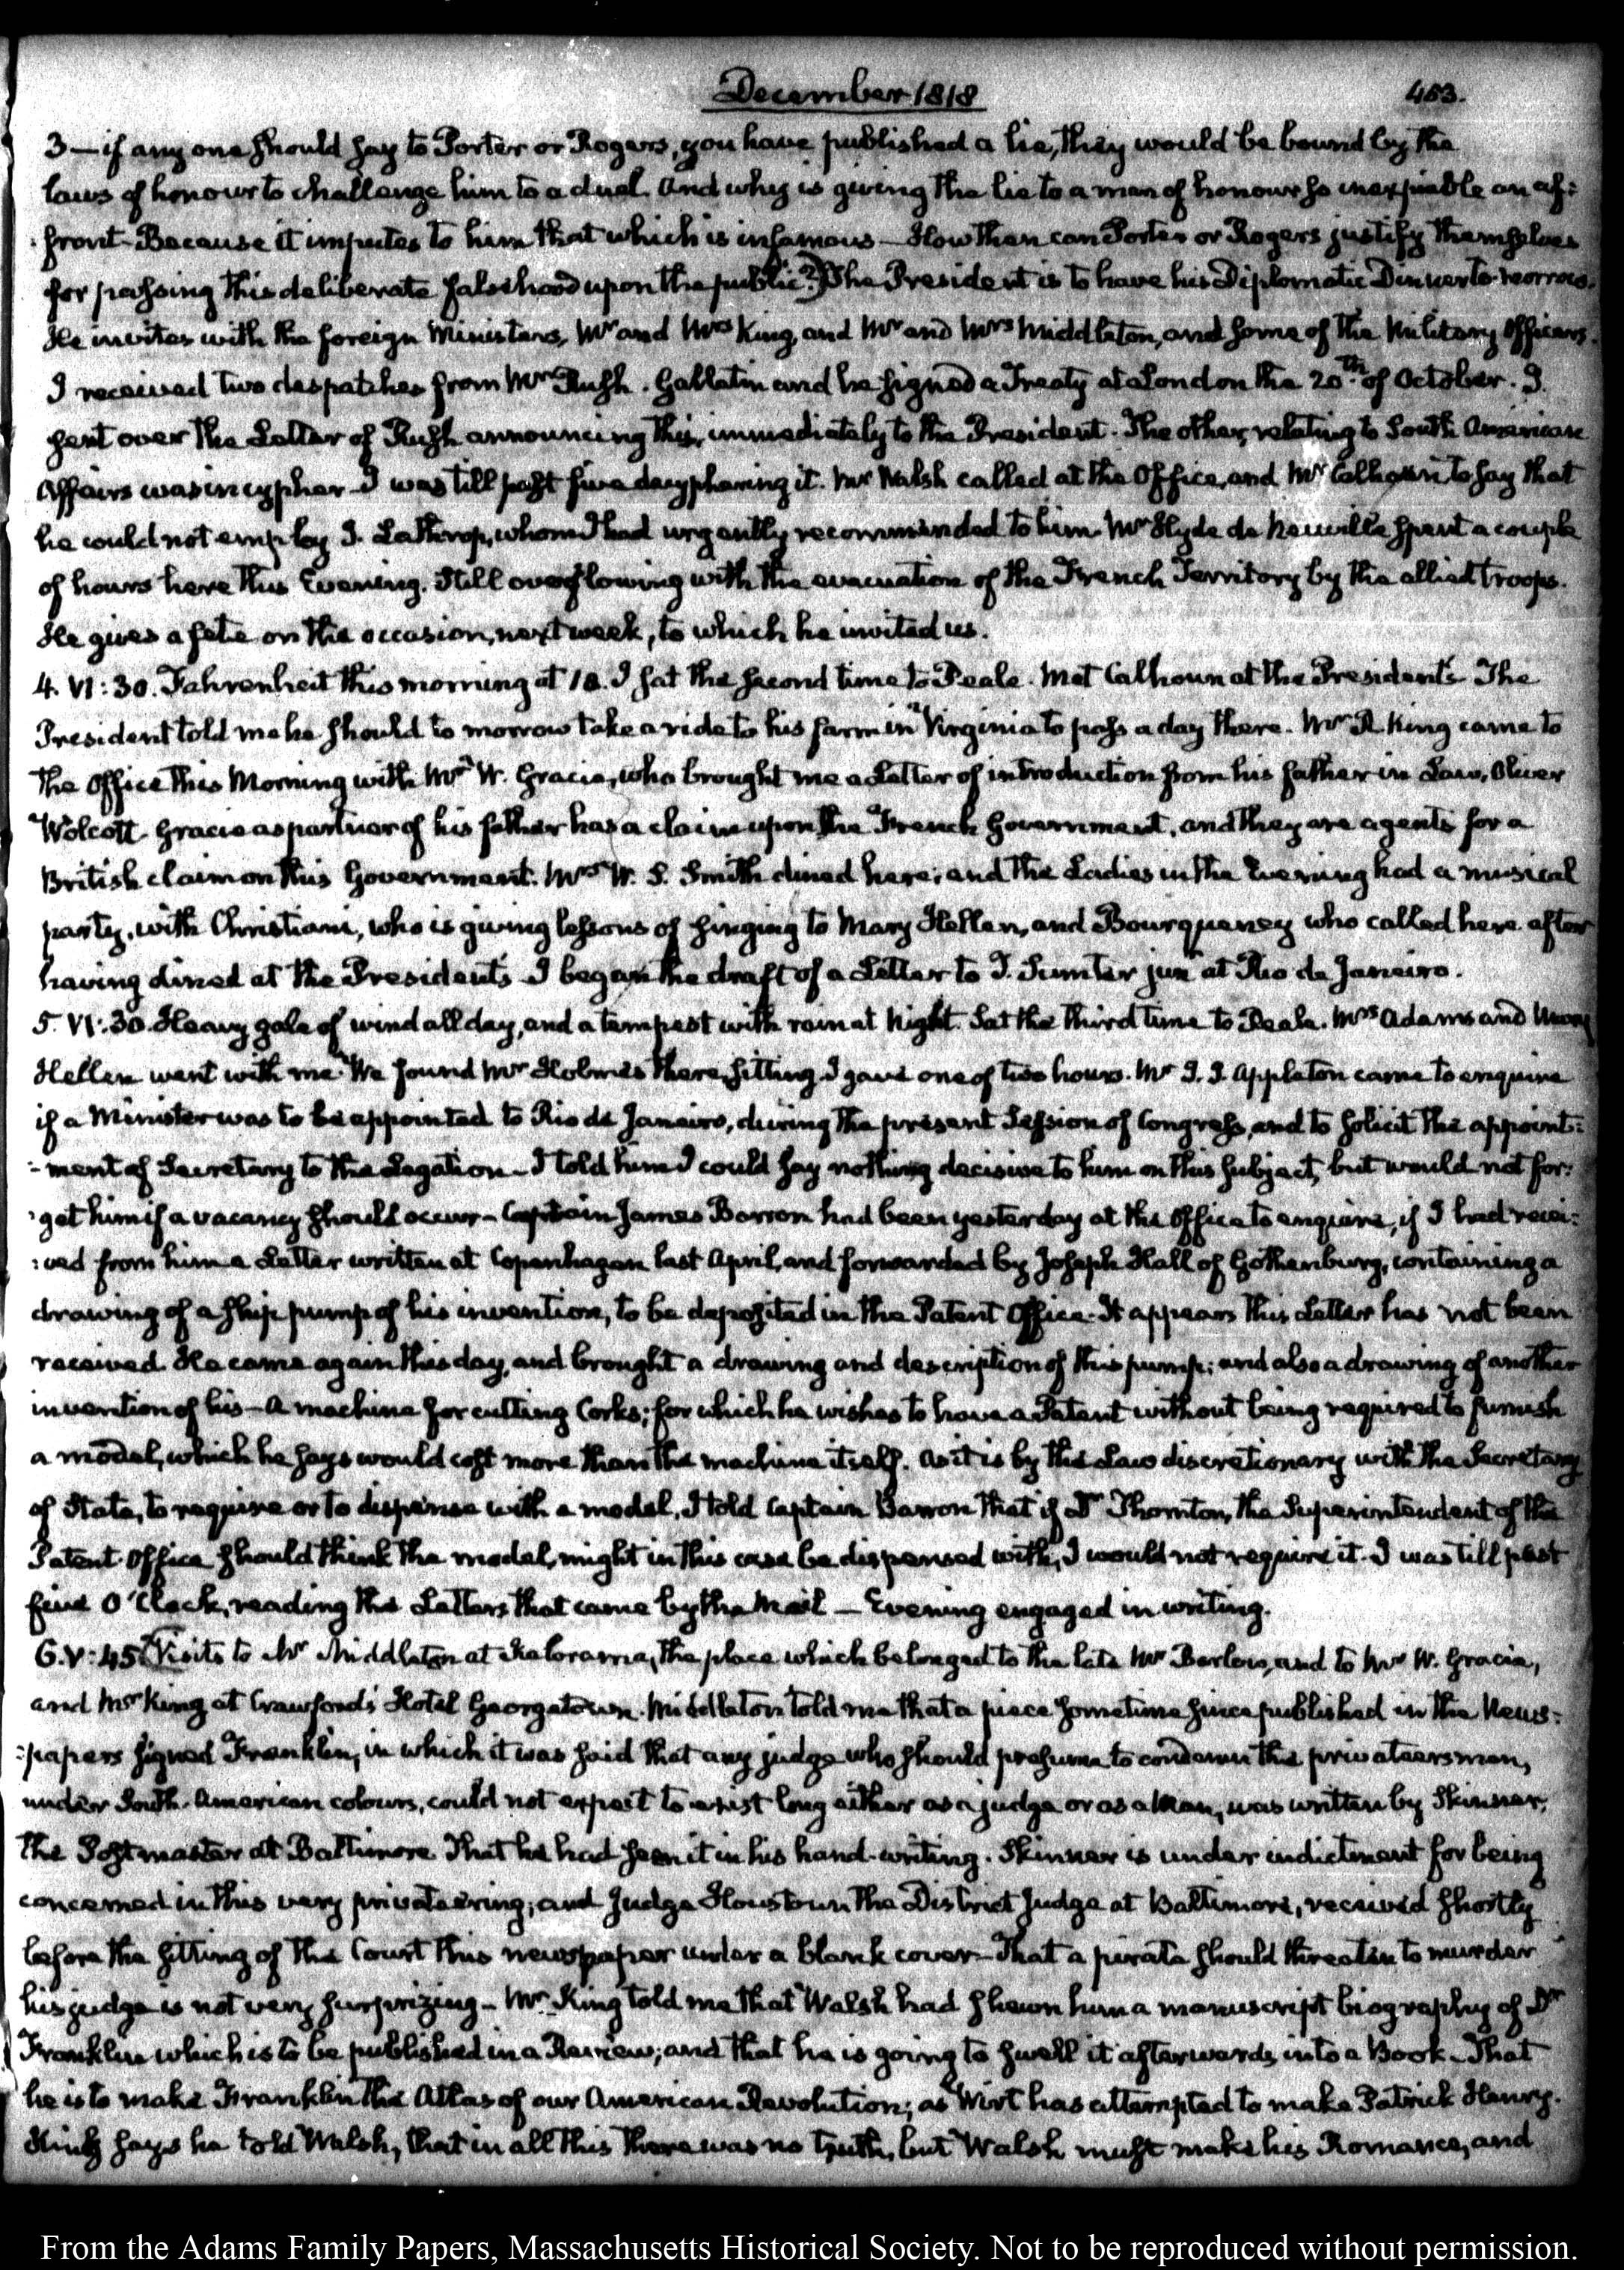 December 1818
453.
3 — if any one should say to Porter or Rogers, you have published a lie, they would be bound by the
laws of honour to challenge him to a duel. And why is giving the lie to a man of honour so inexpiable an af:
:front. Because it imputes to him that which is infamous — How then can Porter or Rogers justify themselves
for passing this deliberate falsehood upon the public?) The President is to have his Diplomatic Dinner to-morrow.
He invites with the foreign Ministers, Mr and Mrs King, and Mr and Mrs Middleton, and some of the Military Officers.
I received two despatches from Mr Rush. Gallatin and he signed a Treaty at London the 20th of October. I
sent over the Letter of Rush announcing this, immediately to the President. The other, relating to South American
Affairs was in cypher — I was till past five decyphering it. Mr Walsh called at the Office, and Mr Calhoun to say that
he could not employ J. Lathrop, whom I had urgently recommended to him. Mr Hyde de Neuville spent a couple
of hours here this Evening. Still overflowing with the evacuation of the French Territory by the allied troops.
He gives a fete on the occasion, next week, to which he invited us.
4. VI:30. Fahrenheit this morning at 18. I sat the second time to Peale. Met Calhoun at the President's. The
President told me he should to morrow take a ride to his farm in Virginia to pass a day there. Mr R. King came to
the Office this Morning with Mr W. Gracie, who brought me a Letter of introduction from his father in Law, Oliver
Wolcott. Gracie as partner of his father has a claim upon the French Government, and they are agents for a
British claim on this Government. Mrs W. S. Smith dined here; and the Ladies in the Evening had a musical
party, with Christiani, who is giving lessons of singing to Mary Hellen, and Bourqueney who called here after
having dined at the President's. I began the draft of a Letter to T. Sumter junr at Rio de Janeiro.
5. VI:30. Heavy gale of wind all day, and a tempest with rain at Night. Sat the third time to Peale. Mrs Adams and Mary
Hellen went with me. We found Mr Holmes there sitting. I gave one of two hours. Mr J. J. Appleton came to enquire
if a Minister was to be appointed to Rio de Janeiro, during the present Session of Congress, and to solicit the appoint:
:ment of Secretary to the Legation — I told him I could say nothing decisive to him on this subject, but would not for:
:get him if a vacancy should occur — Captain James Barron had been yesterday at the Office to enquire, if I had recei:
:ved from him a Letter written at Copenhagen last April, and forwarded by Joseph Hall of Gothenburg, containing a
drawing of a ship pump of his invention, to be deposited in the Patent Office. It appears this Letter has not been
received. He came again this day, and brought a drawing and description of this pump; and also a drawing of another
invention of his — A machine for cutting Corks; for which he wishes to have a Patent without being required to furnish
a model, which he says would cost more than the machine itself. As it is by the Law discretionary with the Secretary
of State, to require or to dispense with a model, I told Captain Barron that if Dr Thornton, the Superintendent of the
Patent Office should think the model, might in this case be dispensed with, I would not require it. I was till past
five O'Clock, reading the Letters that came by the Mail — Evening engaged in writing.
6. V:45. Visits to Mr Middleton at Kalorama, the place which belonged to the late Mr Barlow, and to Mr W. Gracie,
and Mr King at Crawford's Hotel Georgetown. Middleton told me that a piece sometime since published in the News:
:papers signed Franklin, in which it was said that any judge who should presume to condemn the privateersmen,
under South-American colours, could not expect to exist long either as a judge or as a Man, was written by Skinner,
the Postmaster at Baltimore. That he had seen it in his hand-writing. Skinner is under indictment for being
concerned in this very privateering; and Judge Houstoun the District Judge at Baltimore, received shortly
before the sitting of the Court this newspaper under a blank cover — That a pirate should threaten to murder
his judge is not very surprizing — Mr King told me that Walsh had shewn him a manuscript biography of Dr
Franklin which is to be published in a Review; and that he is going to swell it afterwards into a Book — That
he is to make Franklin the Atlas of our American Revolution; as Wirt has attempted to make Patrick Henry.
King says he told Walsh, that in all this there was no truth, but Walsh must make his Romance, and
From the Adams Family Papers, Massachusetts Historical Society. Not to be reproduced without permission.